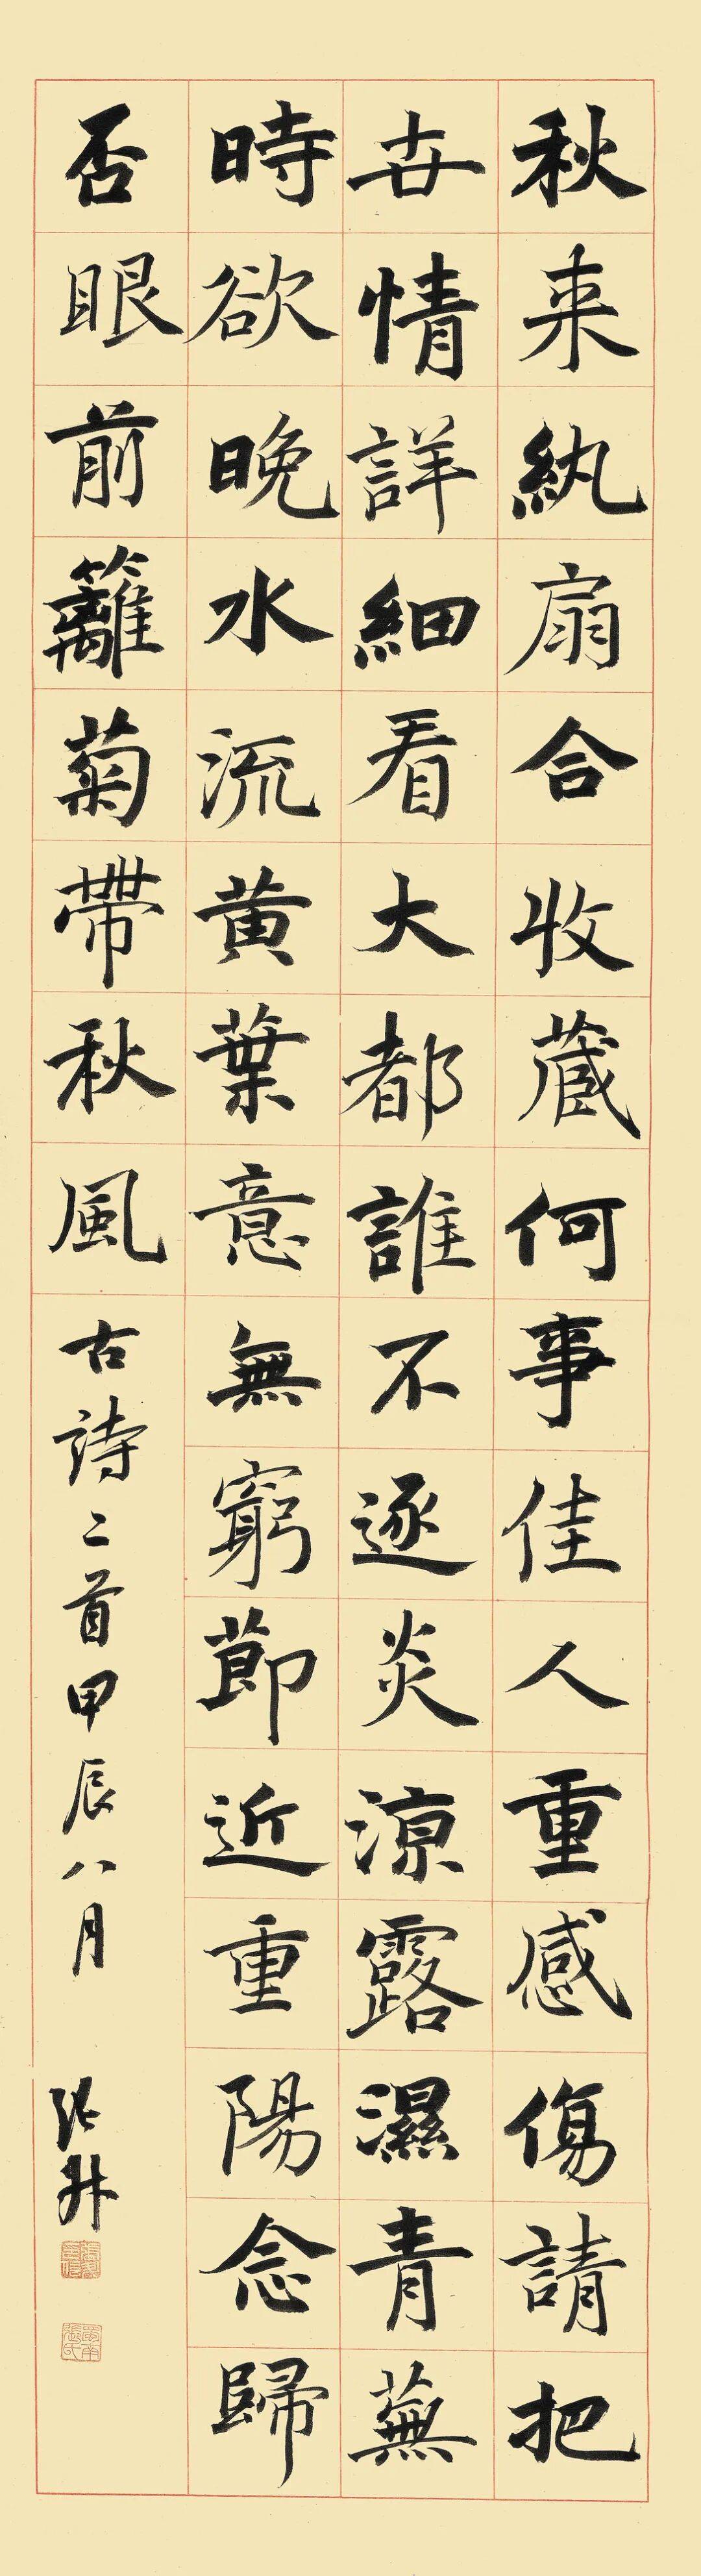 秋来紈扇合收藏何事佳人重感傷請把
世情詳細看大都誰不逐炎涼露濕青蕪
時欲晚水流黄葉意無窮節近重陽念歸
否眼前籬菊帶秋風古詩二首甲辰八月